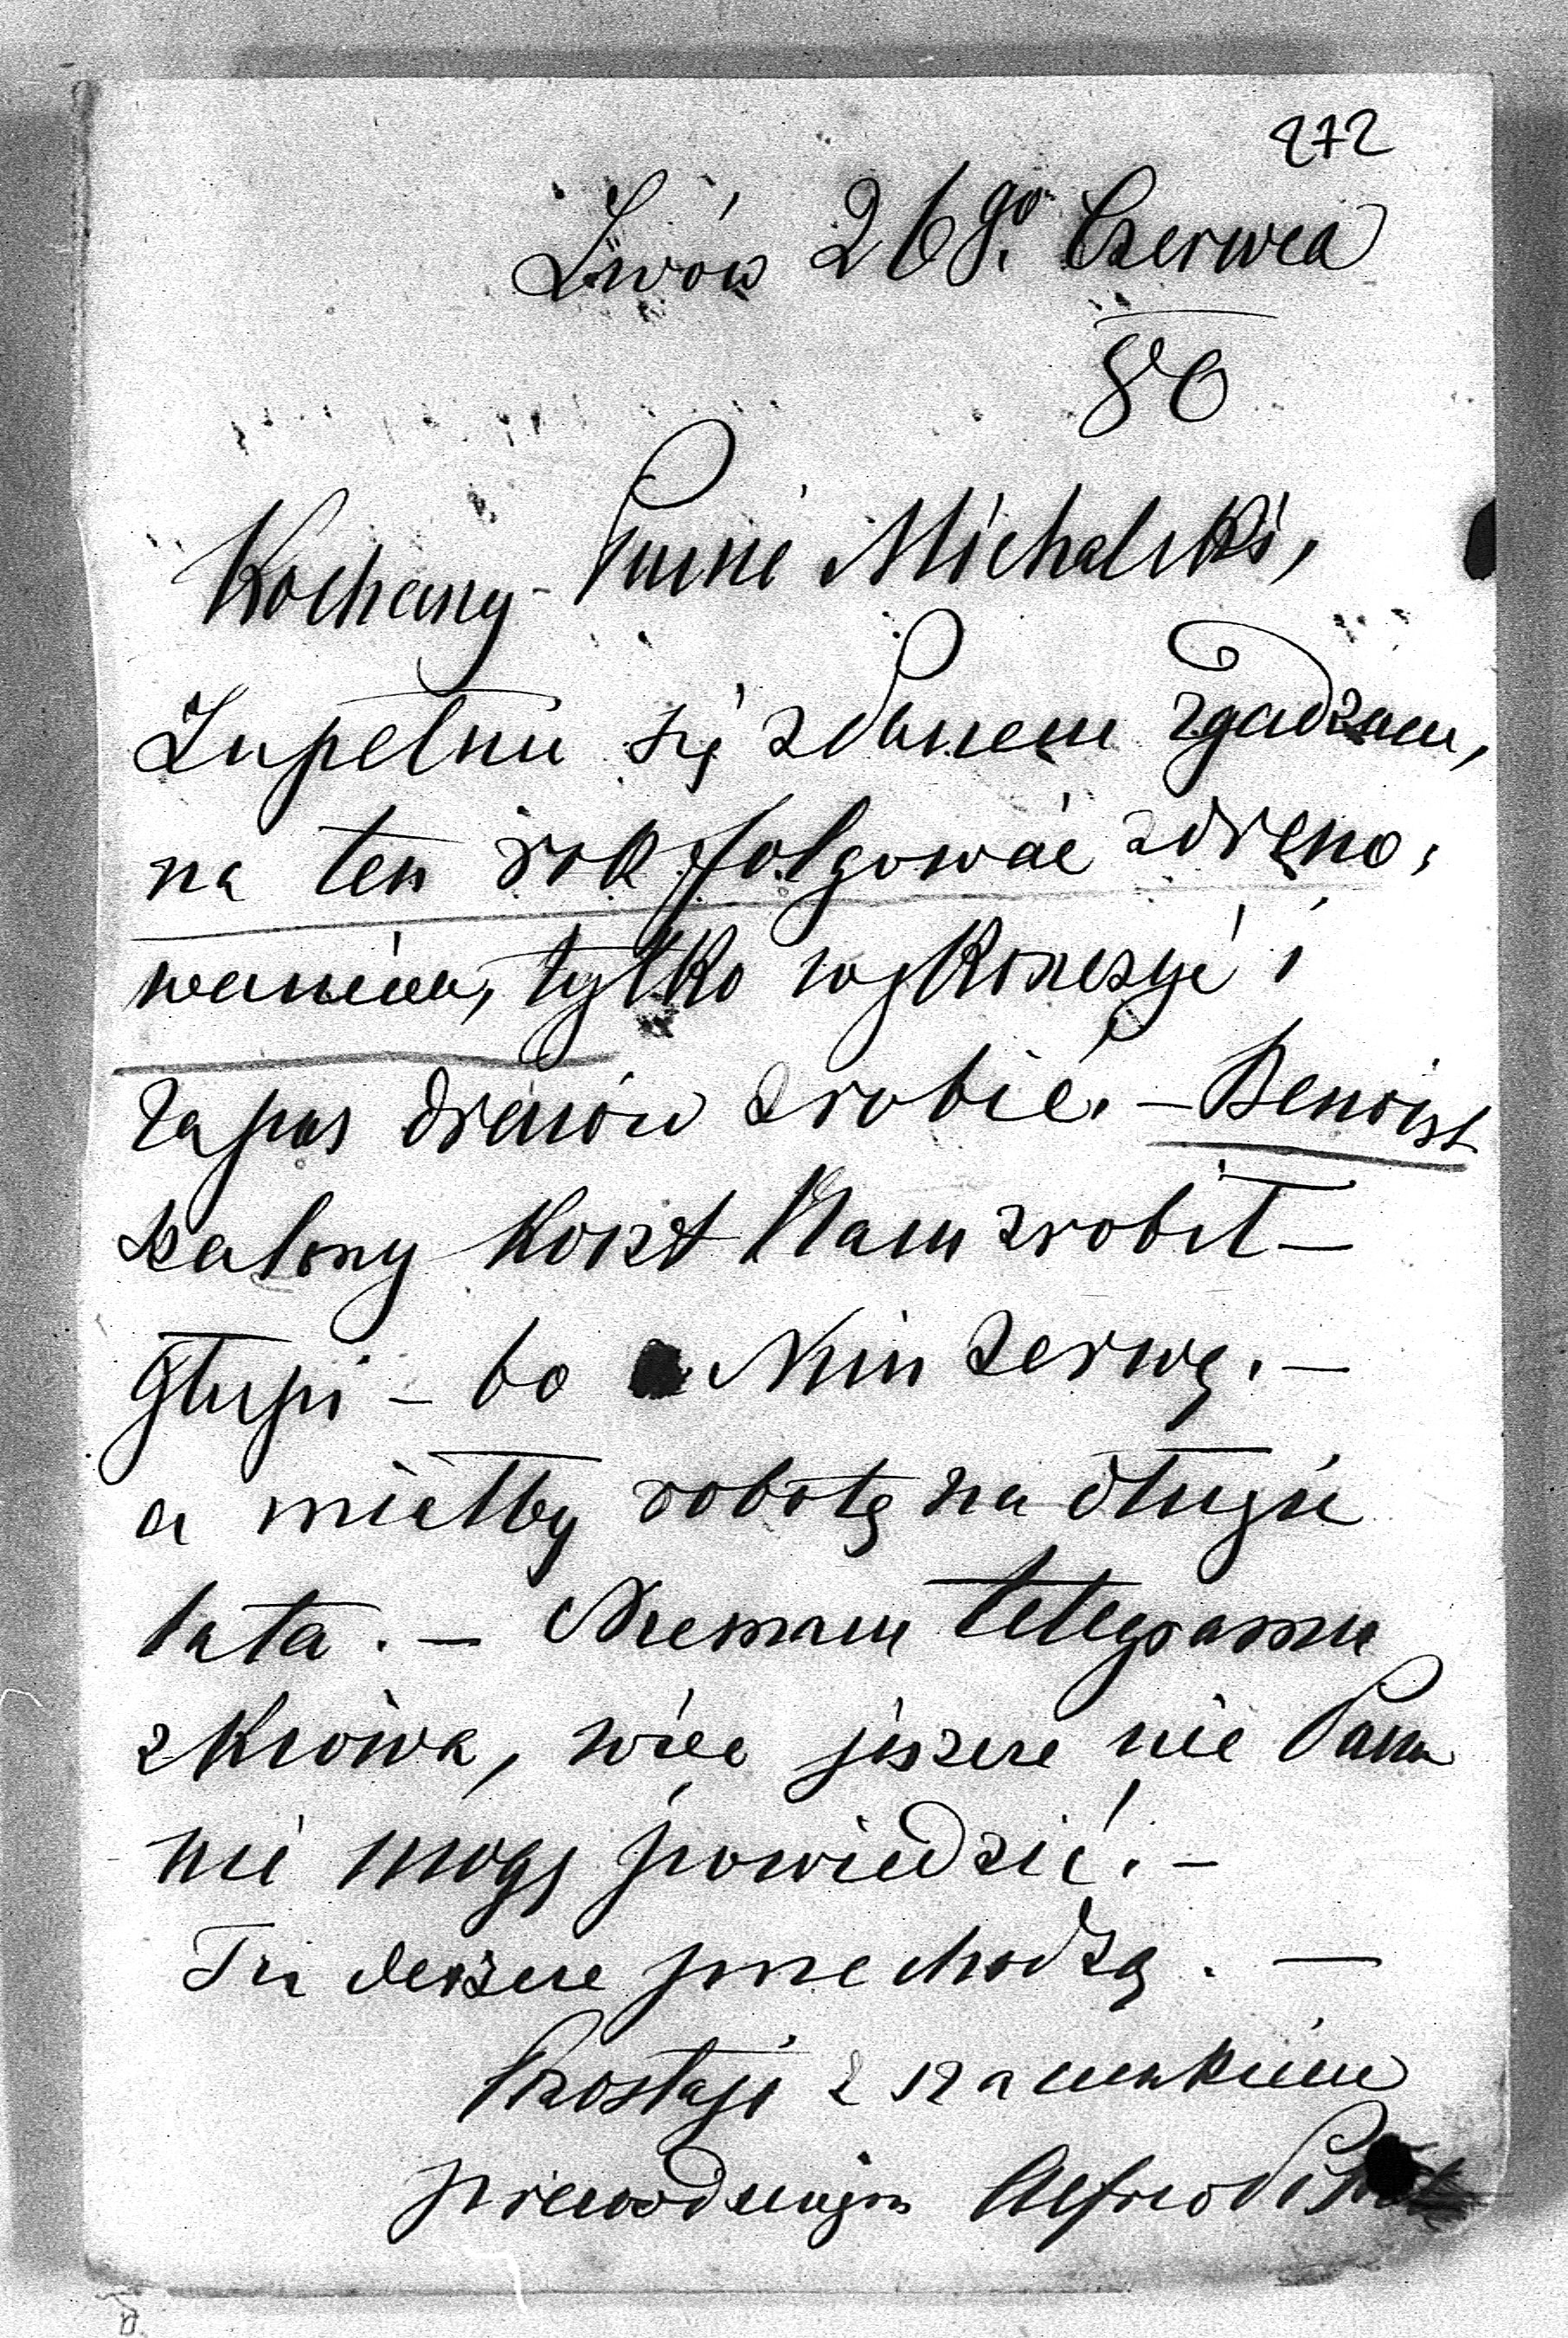 272
Lwów 26go. Czerwca
80
Kochany Panie Michalski,
Zupełnie się z Panem zgadzam,
na ten rok folgować z dreno,
waniem, tylko wykończyć i
zapas drenów zrobić. – Benoist
szalony koszt Nam zrobił –
głupi – bo Nim zerwę. –
a miałby robotę na długie
lata. – Niemam telegramu
z Kijowa, więc jeszcze nic Panu
nie mogę powiedzieć. –
Tu deszcze przechodzą. –
Zostaję z szacunkiem
prawdziwym Alfred